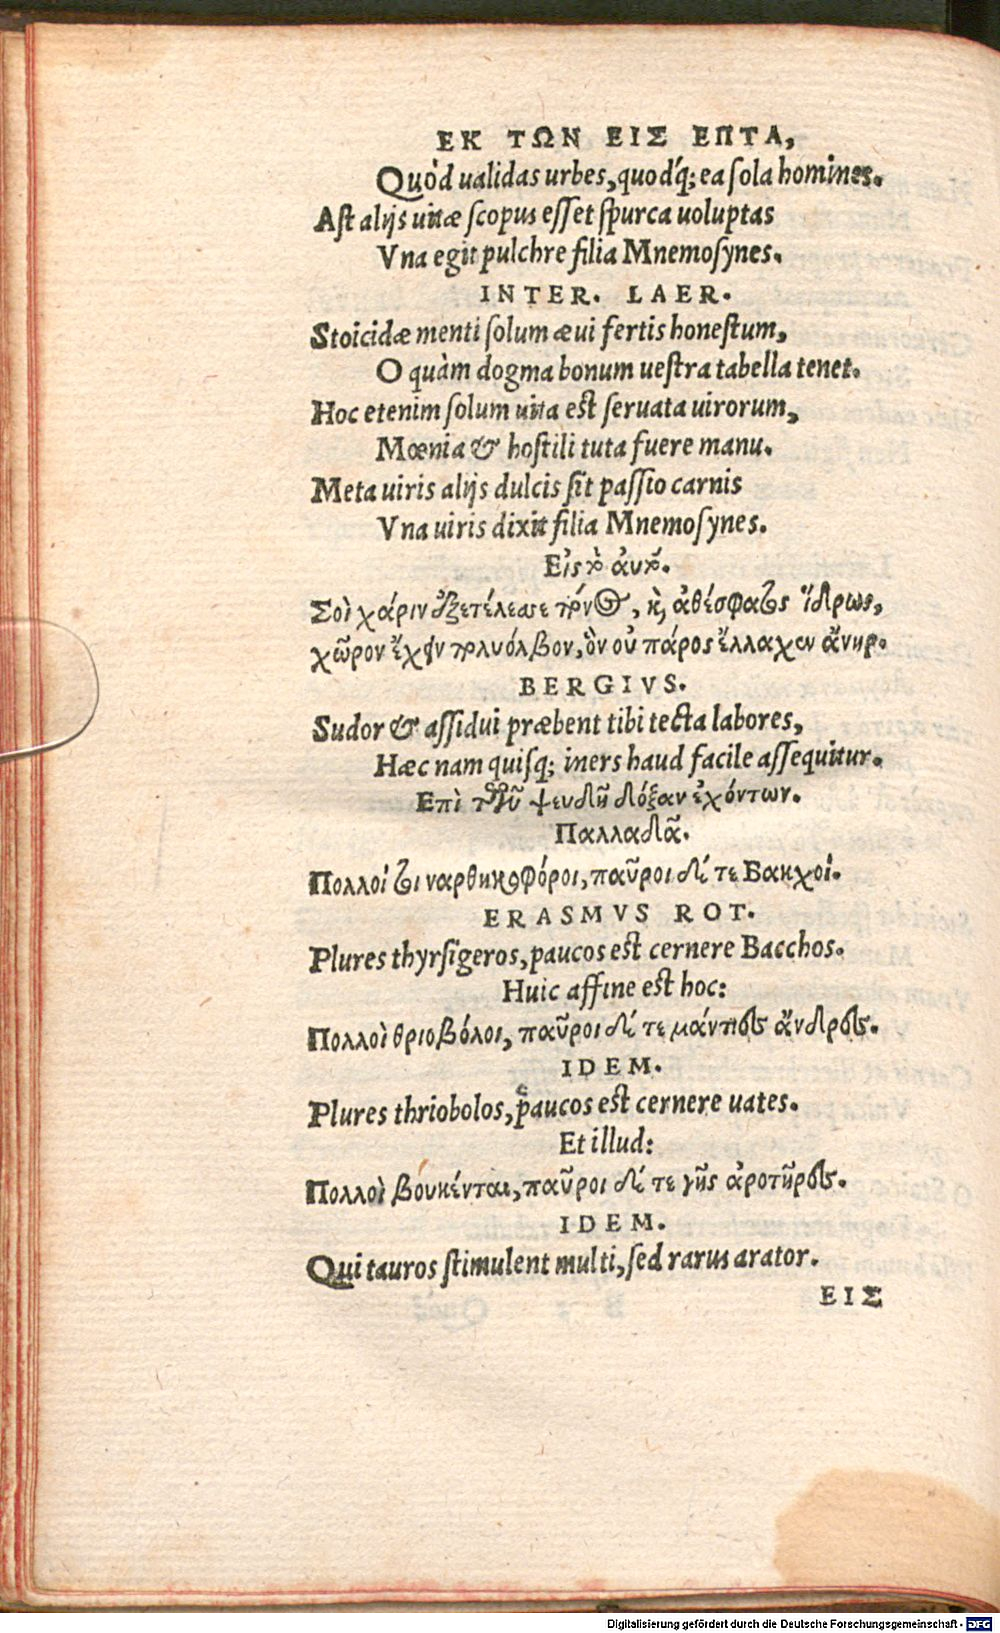 ΕΚ ΤΩΝ ΕΙΣ ΕΠΤΑ,
Quòd ualidas urbes, quodq́; ea sola homines.
Ast alijs uitæ scopus esset spurca uoluptas
Vna egit pulchre filia Mnemosynes.
INTER. LAER.
Stoicidæ menti solum æui fertis honestum,
O quàm dogma bonum uestra tabella tenet.
Hoc etenim solum uita est seruata uirorum,
Mœnia & hostili tuta fuere manu.
Meta uiris alijs dulcis sit passio carnis
Vna uiris dixit filia Mnemosynes.
Εἰς τὸ αὐτό.
Σοὶ χάριν ἐξετέλεσσε πόνος, καὶ ἀθέσφατος ἵδρως,
χῶρον ἔχειν πολυόλβον, ὃν οὐ πάρος ἔλλαχεν ἄνηρ.
BERGIVS.
Sudor & assidui præbent tibi tecta labores,
Hæc nam quisq; iners haud facile assequitur.
Επὶ τῶν ψευδῆ δόξαν ἐχόντων.
Παλλαδᾶ.
Πολλοί τοι ναρθηκοφόροι, παῦροι δέ τε Βακχοί.
ERASMVS ROT.
Plures thyrsigeros, paucos est cernere Bacchos.
Huic affine est hoc:
Πολλοὶ θριοβόλοι, παῦροι δέ τε μάντηες ἄνδρες.
IDEM.
Plures thriobolos, paucos est cernere uates.
Et illud:
Πολλοὶ βουκένται, παῦροι δέ τε γῆς ἀροτῆρες.
IDEM.
Qui tauros stimulent multi, sed rarus arator.
ΕΙΣ
Digitalisierung gefördert durch die Deutsche Forschungsgemeinschaft - DFG